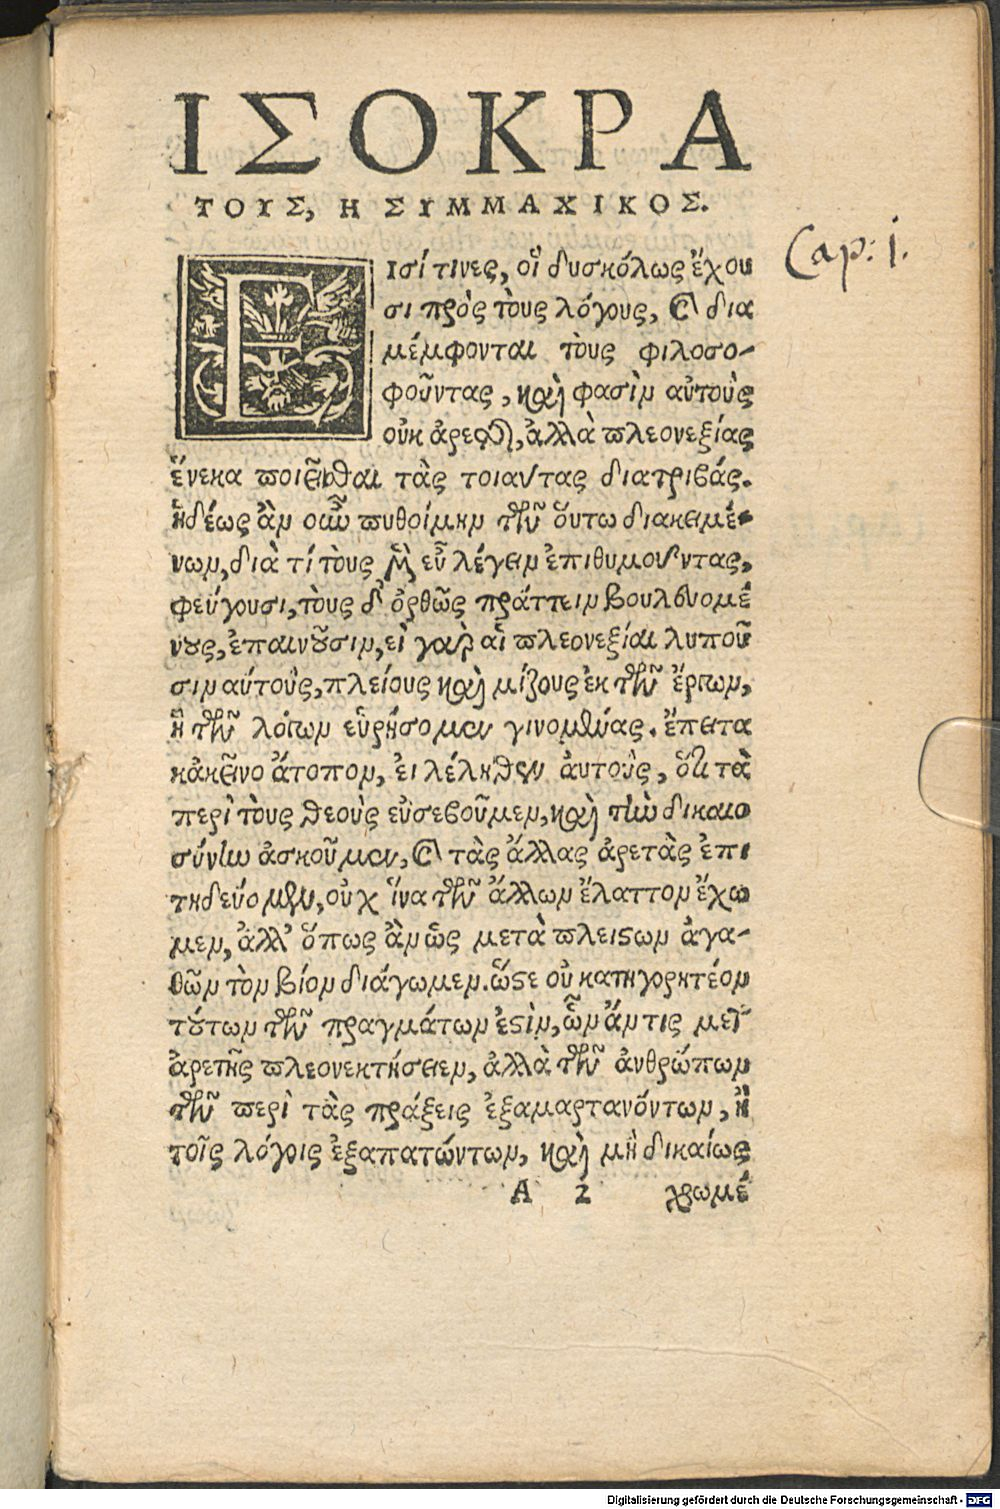 ΙΣΟΚΡΑ
ΤΟΥΣ, Η ΣΥΜΜΑΧΙΚΟΣ.
Cap: 1.
ΕΙσί τινες, οἳ δυσκόλως ἔχου
σι πρὸς τοὺς λόγους, καὶ δια
μέμφονται τοὺς φιλοσο-
φοῦντας, καὶ φασὶν αὐτοὺς
οὐκ ἀρετῆς, ἀλλὰ πλεονεξίας
ἕνεκα ποιεῖσθαι τὰς τοιαύτας διατριβάς.
ἡδέως ἂν οὖν πυθοίμην τῶν οὕτω διακειμέ-
νων, διὰ τί τοὺς μὲν εὖ λέγειν ἐπιθυμοῦντας,
ψέγουσι, τοὺς δ' ὀρθῶς πράττειν βουλευομέ
νους, ἐπαινοῦσιν, εἰ γὰρ αἱ πλεονεξίαι λυποῦ
σιν αὐτοὺς, πλείους καὶ μείζους ἐκ τῶν ἔργων,
ἢ τῶν λόγων εὑρήσομεν γινομένας. ἔπειτα
κἀκεῖνο ἄτοπον, εἰ λέληθεν αὐτοὺς, ὅτι τὰ
περὶ τοὺς θεοὺς εὐσεβοῦμεν, καὶ τὴν δικαιο
σύνην ἀσκοῦμεν, καὶ τὰς ἄλλας ἀρετὰς ἐπι
τηδεύομεν, οὐχ ἵνα τῶν ἄλλων ἔλαττον ἔχω
μεν, ἀλλ' ὅπως ἂν ὡς μετὰ πλείστων ἀγα-
θῶν τὸν βίον διάγωμεν. ὥστε οὐ κατηγορητέον
τούτων τῶν πραγμάτων ἐστὶν, ὧν ἄν τις μετ'
ἀρετῆς πλεονεκτήσειεν, ἀλλὰ τῶν ἀνθρώπων
τῶν περὶ τὰς πράξεις ἐξαμαρτανόντων, ἢ
τοῖς λόγοις ἐξαπατώντων, καὶ μὴ δικαίως
A 2 χρωμέ
Digitalisierung gefördert durch die Deutsche Forschungsgemeinschaft - DFG